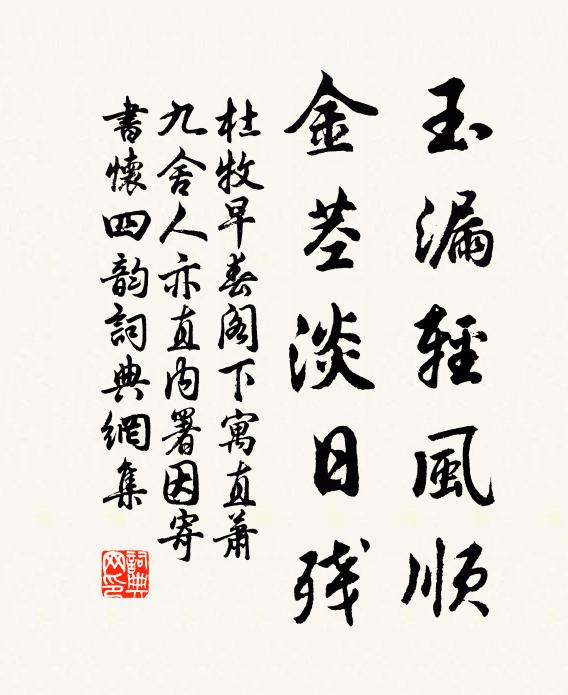 玉漏輕風順
金莖淡日残
杜牧早春阁下寓直萧
九舍人亦直内署因寄
書懷四韵詞典網集
詞典網印